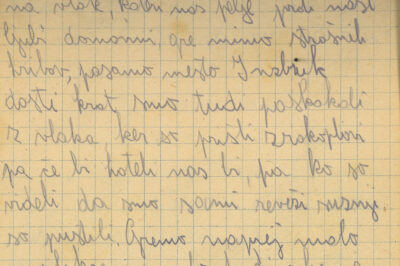 na vlak, kateri nas pelje proti naši
ljubi domovini, gre mimo strašnih
hribov, pasamo mesto Insbruk
dosti krat smo tudi poskakali
z vlaka, ker so prišli zrakoplovi
pa če bi hoteli nas bi, pa ko so
videli da smo sami reveži
so pustili. Gremo naprej malo